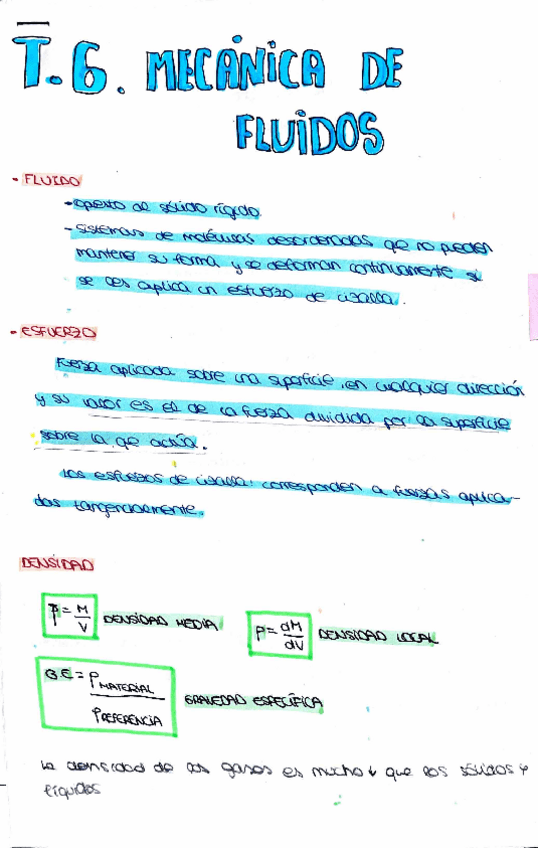 T.6. MECÁNICA DE
FLUIDOS
- FLUIDO
- opuesto al sólido rígido.
- Sistemas de moléculas desordenadas que no pueden
mantener su forma y se deforman continuamente si
se les aplica un esfuerzo de cizalla.
- ESFUERZO
Fuerza aplicada sobre una superficie, en cualquier dirección
y su valor es el de la fuerza dividida por la superficie
sobre la que actúa.
Los esfuerzos de cizalla: corresponden a fuerzas aplica-
das tangencialmente.
DENSIDAD
ρ̄ = M/V DENSIDAD MEDIA
ρ = dM/dV DENSIDAD LOCAL
G.E = ρMATERIAL/ρREFERENCIA GRAVEDAD ESPECÍFICA
la densidad de los gases es mucho ↓ que los sólidos y
líquidos